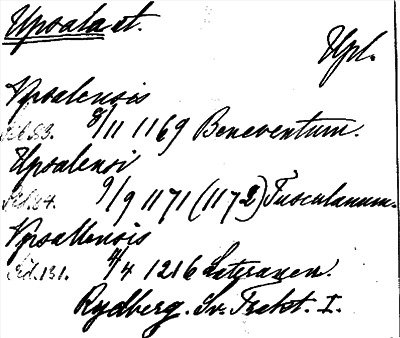 Upsala st.
Upl.
Upsalensis
Sid. 83. 8/11 1169 Beneventum.
Upsalensi
Sid. 84. 9/9 1171 (1172) Tusculanum.
Upsallensis
Sid. 131. 4/4 1216 Lateranen.
Rydberg. Sv. Trakt. I.